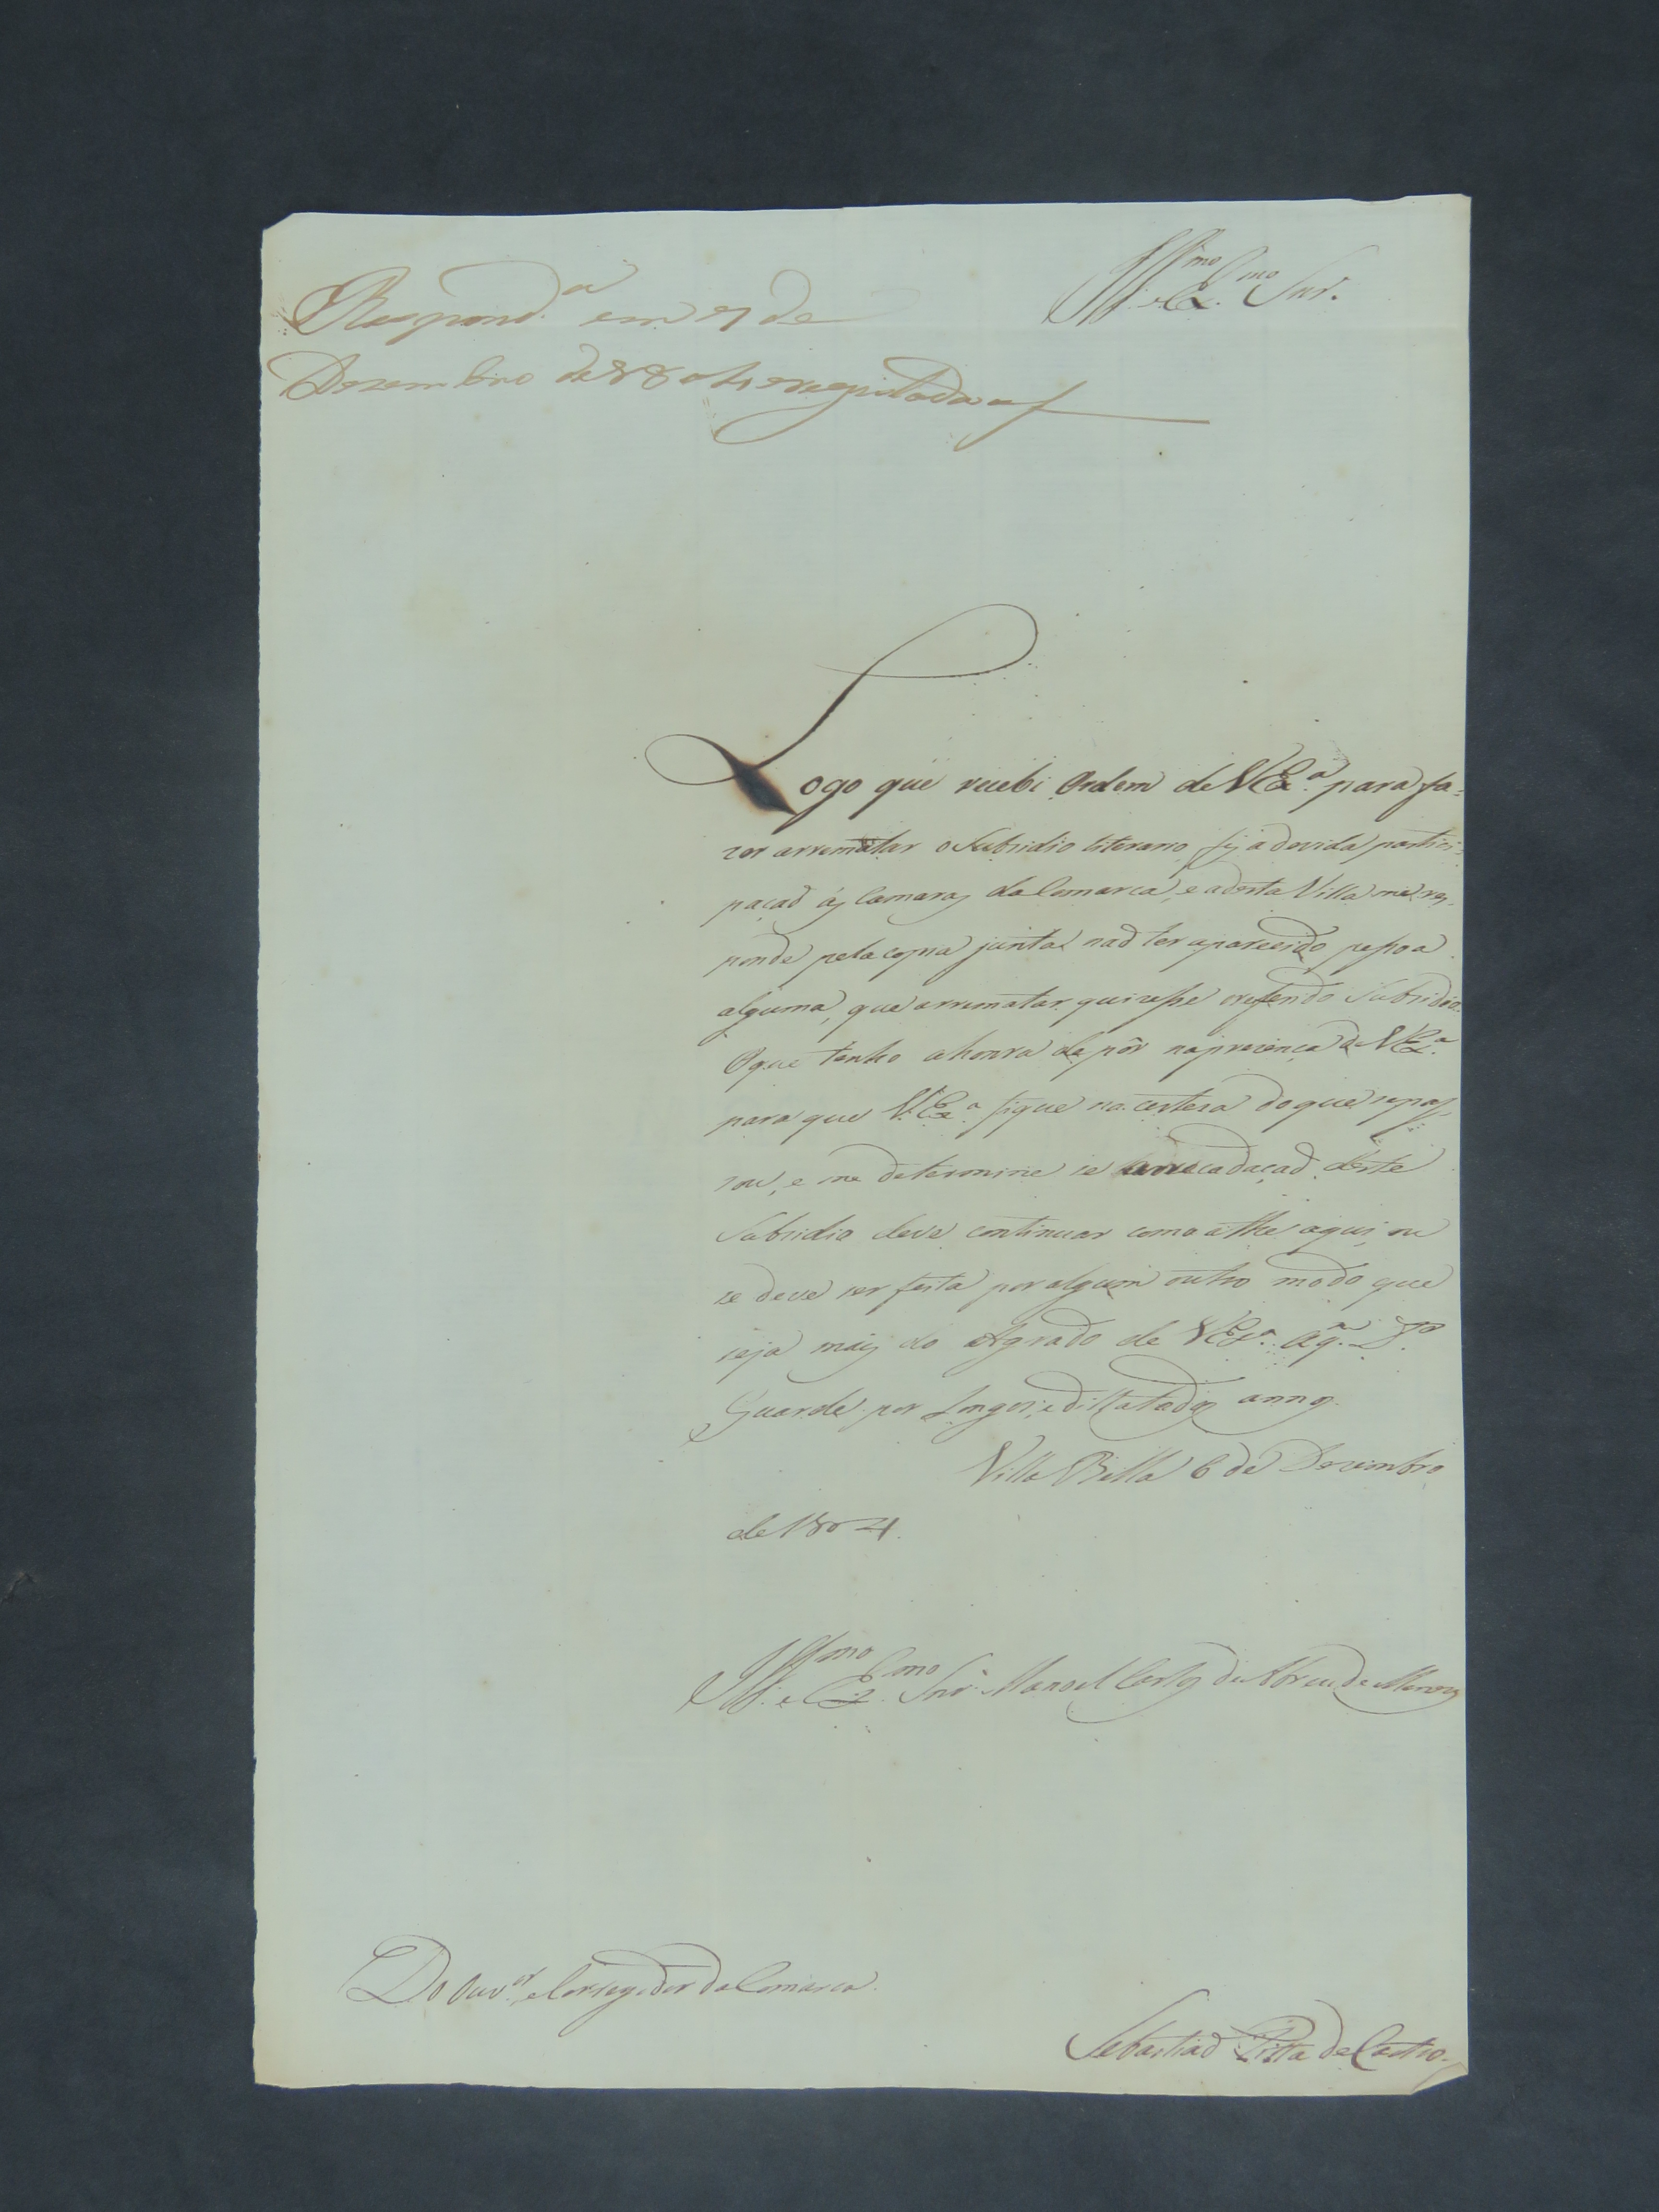 Respond.ª em 7 de
Dezembro de 1804 e registada a f
Ill.mo e Ex.mo Snr.
Logo que recebi Ordem de V Ex.ª para fa=
zer arrematar o Subsidio literario, fiz a devida partici=
paçaõ ás Camaras da Comarca, e a desta Villa me res=
ponde pela copia junta naõ ter aparecido pessoa
alguma, que arrematar quizesse o referido Subsidio.
O que tenho a honra de pôr na prezença de V Ex.ª
para que V. Ex.ª fique na certeza do que se pas=
sou, e me determine se a arrecadaçaõ deste
Subsidio deve continuar como athe aqui, ou
se deve ser feita por algum outro modo que
seja mais do Agrado de V Ex.ª A q.m D.s
Guarde por longos, e dilatados annos.
Villa Bella 6 de Dezembro
de 1804.
Ill.mo e Ex.mo Snr. Manoel Carlos de Abreu de Menezes
Do Ouv.or e Corregedor da Comarca.
Sebastiaõ Pitta de Castro.